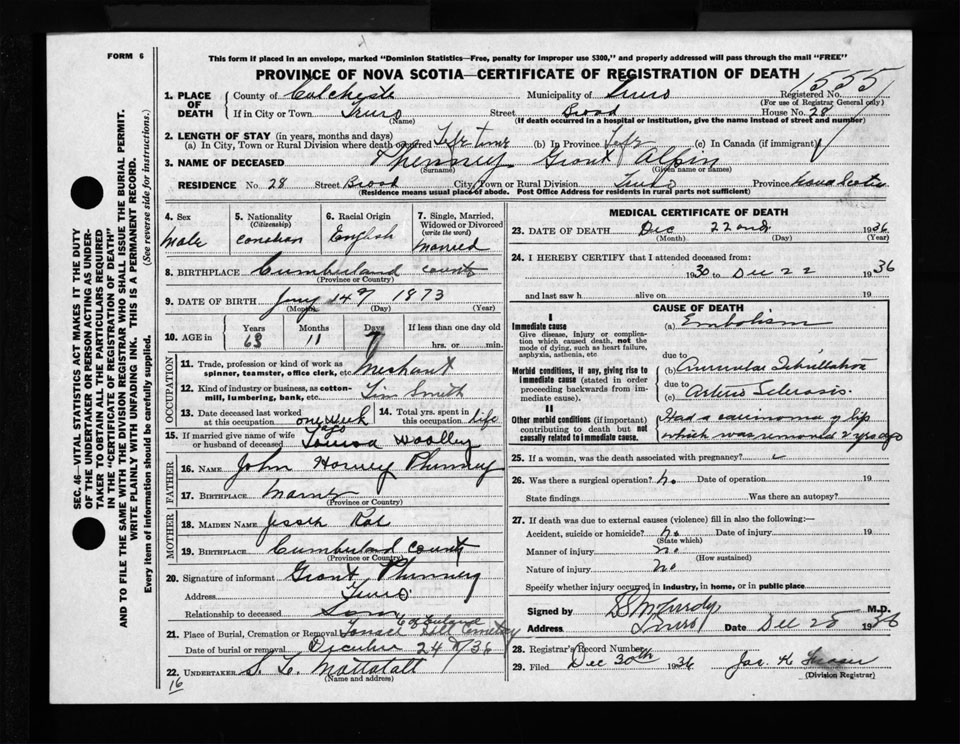 FORM 6
This form if placed in an envelope, marked "Dominion Statistics—Free, penalty for improper use $300," and properly addressed will pass through the mail "FREE"
PROVINCE OF NOVA SCOTIA—CERTIFICATE OF REGISTRATION OF DEATH
1555
1. PLACE OF DEATH
County of Colchester Municipality of Truro Registered No.
(For use of Registrar General only)
If in City or Town Truro Street Brood House No. 28
(Name) (If death occurred in a hospital or institution, give the name instead of street and number)
2. LENGTH OF STAY (in years, months and days)
(a) In City, Town or Rural Division where death occurred Life time (b) In Province Life (c) In Canada (if immigrant)
3. NAME OF DECEASED Phinney Grant Alpin
(Surname) (Given name or names)
RESIDENCE No. 28 Street Brood City, Town or Rural Division Truro Province Nova Scotia
(Residence means usual place of abode. Post Office Address for residents in rural parts not sufficient)
SEC. 46—VITAL STATISTICS ACT MAKES IT THE DUTY
OF THE UNDERTAKER OR PERSON ACTING AS UNDER-
TAKER TO OBTAIN ALL THE PARTICULARS REQUIRED
IN THE "CERTIFICATE OF REGISTRATION OF DEATH"
AND TO FILE THE SAME WITH THE DIVISION REGISTRAR WHO SHALL ISSUE THE BURIAL PERMIT.
WRITE PLAINLY WITH UNFADING INK. THIS IS A PERMANENT RECORD.
Every item of information should be carefully supplied. (See reverse side for instructions.)
4. Sex Male
5. Nationality (Citizenship) Canadian
6. Racial Origin English
7. Single, Married, Widowed or Divorced (write the word) Married
8. BIRTHPLACE Cumberland County
(Province or Country)
9. DATE OF BIRTH 14 1873
(Month) (Day) (Year)
10. AGE in Years 63 Months 11 Days 7 If less than one day old hrs. or min.
OCCUPATION
11. Trade, profession or kind of work as spinner, teamster, office clerk, etc. Merchant
12. Kind of industry or business, as cotton-mill, lumbering, bank, etc. Tin Smith
13. Date deceased last worked at this occupation one week ago
14. Total yrs. spent in this occupation life
15. If married give name of wife or husband of deceased Woolley
FATHER
16. NAME John Harvey Phinney
17. BIRTHPLACE
(Province or Country)
MOTHER
18. MAIDEN NAME
19. BIRTHPLACE Cumberland County
(Province or Country)
20. Signature of informant Grant Phinney
Address Truro
Relationship to deceased Son
21. Place of Burial, Cremation or Removal Cemetery
Date of burial or removal December 24 1936
22. UNDERTAKER S. L. Mattatall
(Name and address)
16
MEDICAL CERTIFICATE OF DEATH
23. DATE OF DEATH Dec 22nd 1936
(Month) (Day) (Year)
24. I HEREBY CERTIFY that I attended deceased from:
1930 to Dec 22 1936
and last saw h alive on 19
CAUSE OF DEATH
I
Immediate cause
Give disease, injury or complication which caused death, not the mode of dying, such as heart failure, asphyxia, asthenia, etc
(a) Embolism
due to
Morbid conditions, if any, giving rise to immediate cause (stated in order proceeding backwards from immediate cause).
(b) Auricular Fibrillation
due to
(c) Arterio Sclerosis.
II
Other morbid conditions (if important) contributing to death but not causally related to immediate cause.
Had a carcinoma of lip
which was removed yrs ago
25. If a woman, was the death associated with pregnancy?
26. Was there a surgical operation? no Date of operation 19
State findings Was there an autopsy?
27. If death was due to external causes (violence) fill in also the following:—
Accident, suicide or homicide? no Date of injury 19
(State which)
Manner of injury no
(How sustained)
Nature of injury no
Specify whether injury occurred in industry, in home, or in public place
Signed by M.D.
Address Truro Date Dec 25 1936
28. Registrar's Record Number
29. Filed Dec 30th 1936 Jas. H.
(Division Registrar)